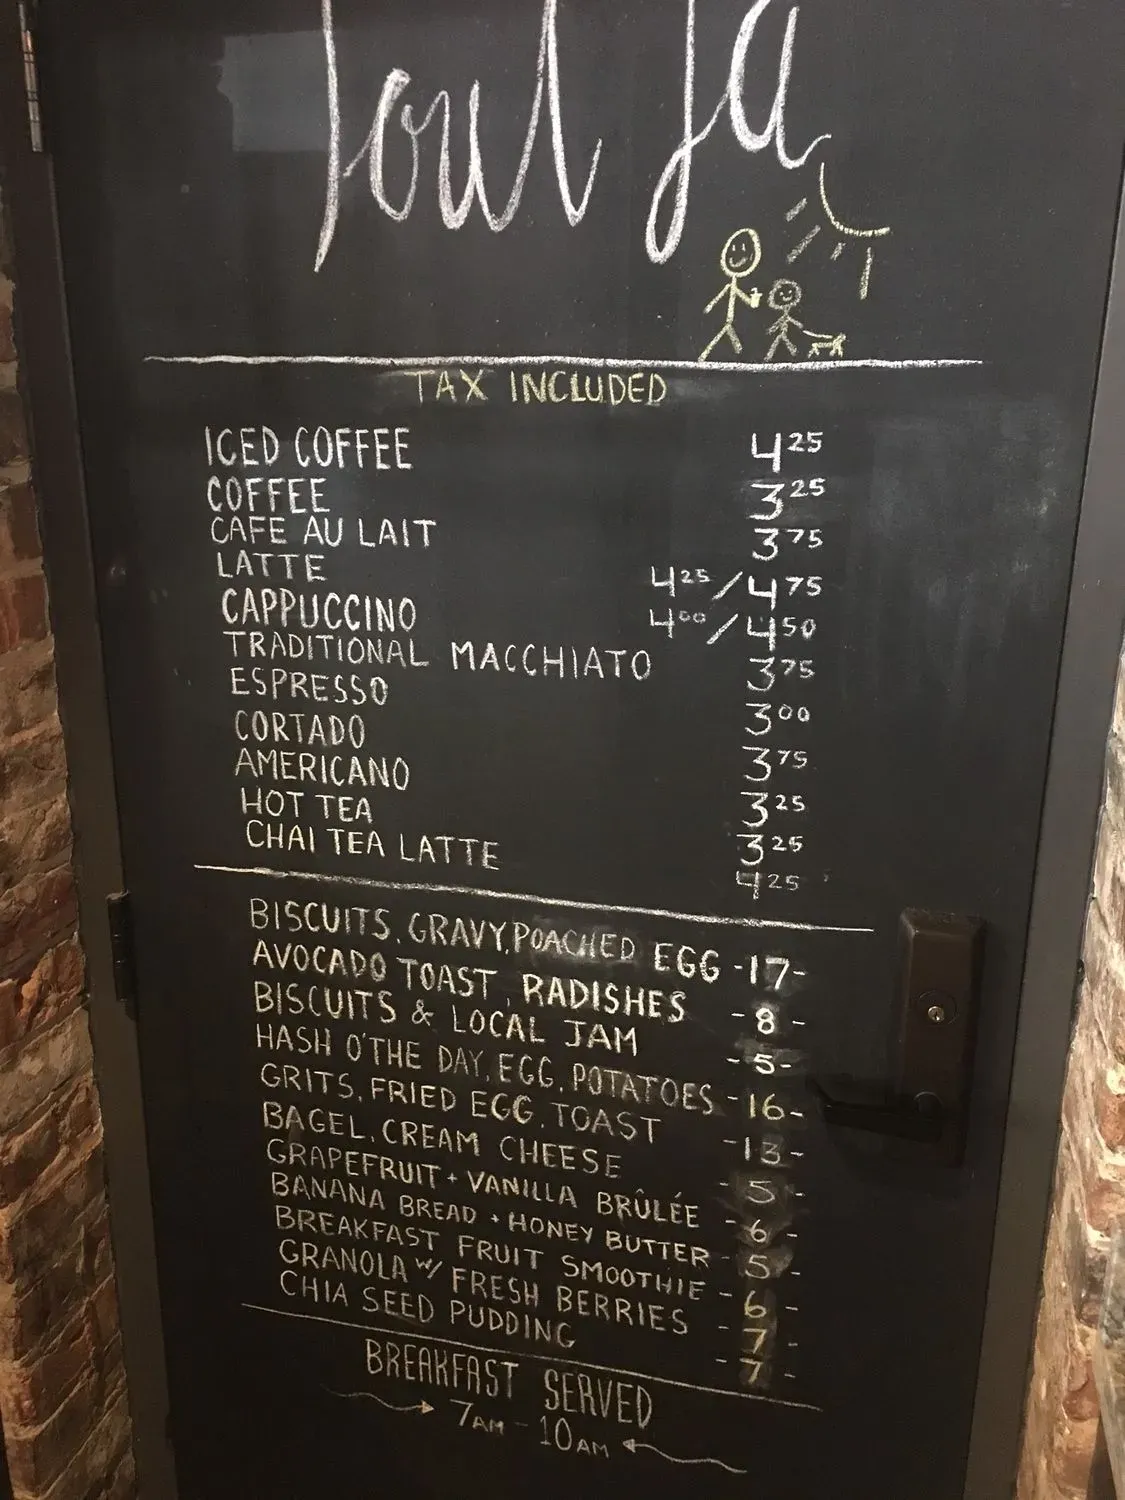 Tout Là
TAX INCLUDED
ICED COFFEE 4 25
COFFEE 3 25
CAFE AU LAIT 3 75
LATTE 4 25 / 4 75
CAPPUCCINO 4 00 / 4 50
TRADITIONAL MACCHIATO 3 75
ESPRESSO 3 00
CORTADO 3 75
AMERICANO 3 25
HOT TEA 3 25
CHAI TEA LATTE 4 25
BISCUITS, GRAVY, POACHED EGG -17-
AVOCADO TOAST, RADISHES -8-
BISCUITS & LOCAL JAM -5-
HASH O'THE DAY, EGG, POTATOES -16-
GRITS, FRIED EGG, TOAST -13-
BAGEL, CREAM CHEESE -5-
GRAPEFRUIT + VANILLA BRÛLÉE -6-
BANANA BREAD + HONEY BUTTER -5-
BREAKFAST FRUIT SMOOTHIE -6-
GRANOLA W/ FRESH BERRIES -7-
CHIA SEED PUDDING -7-
BREAKFAST SERVED
7AM - 10AM